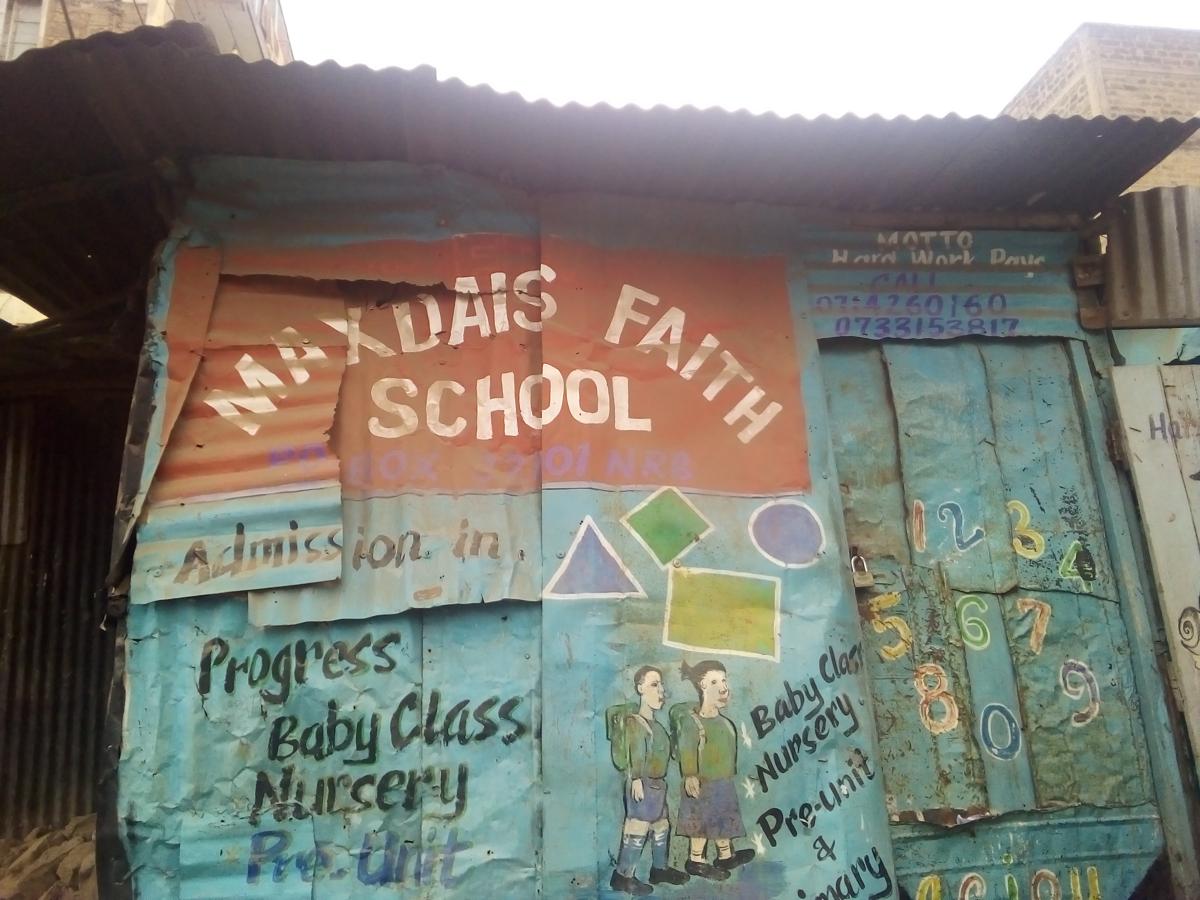 MAXDAIS FAITH
SCHOOL
PO BOX 57101 NRB
Admission in
Progress
Baby Class
Nursery
Pre-Unit
Baby Class
Nursery
Pre-Unit
&
MOTTO
Hard Work Pays
CALL
0733153817
1 2 3
4
5 6 7
8 9
0
a e i o u